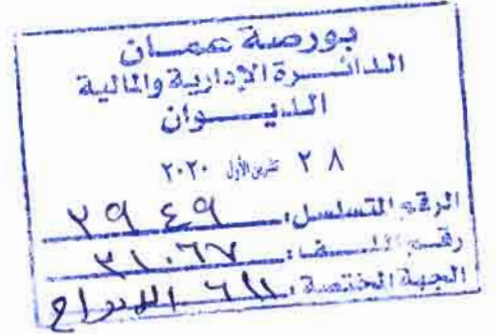 بورصة عمان
الدائرة الإدارية والمالية
الديوان
٢٨ تشرين الأول ٢٠٢٠
الرقم المتسلسل: ٢٩٤٩
رقم الملف: ٣١٠٦٧
الجهة المختصة: الإدراج